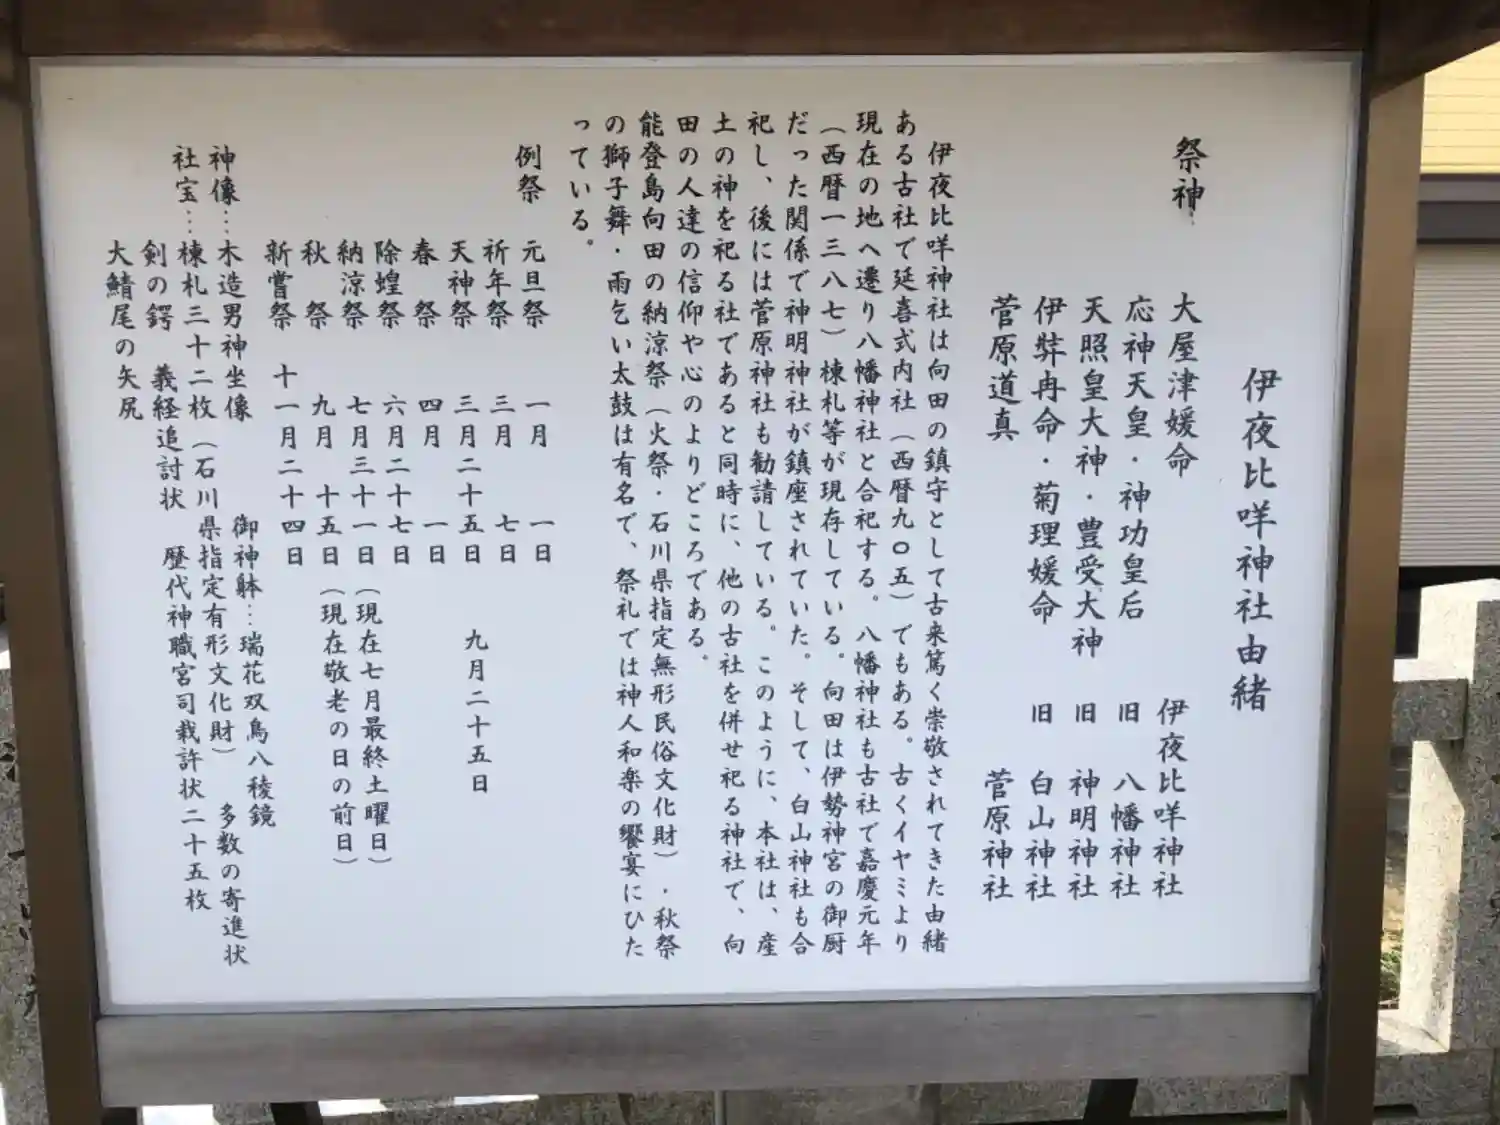 伊夜比咩神社由緒
祭神…
大屋津媛命 伊夜比咩神社
応神天皇・神功皇后 旧 八幡神社
天照皇大神・豊受大神 旧 神明神社
伊弉冉命・菊理媛命 旧 白山神社
菅原道真 菅原神社
伊夜比咩神社は向田の鎮守として古来篤く崇敬されてきた由緒
ある古社で延喜式内社（西暦九〇五）でもある。古くイヤミより
現在の地へ遷り八幡神社と合祀する。八幡神社も古社で嘉慶元年
（西暦一三八七）棟札等が現存している。向田は伊勢神宮の御厨
だった関係で神明神社が鎮座されていた。そして、白山神社も合
祀し、後には菅原神社も勧請している。このように、本社は、産
土の神を祀る社であると同時に、他の古社を併せ祀る神社で、向
田の人達の信仰や心のよりどころである。
能登島向田の納涼祭（火祭・石川県指定無形民俗文化財）・秋祭
の獅子舞・雨乞い太鼓は有名で、祭礼では神人和楽の饗宴にひた
っている。
例祭 元旦祭 一月 一日
祈年祭 三月 七日
天神祭 三月二十五日 九月二十五日
春祭 四月 一日
除蝗祭 六月二十七日
納涼祭 七月三十一日（現在七月最終土曜日）
秋祭 九月 十五日（現在敬老の日の前日）
新嘗祭 十一月二十四日
神像…木造男神坐像 御神躰…瑞花双鳥八稜鏡
社宝…棟札三十二枚（石川県指定有形文化財） 多数の寄進状
剣の鍔 義経追討状 歴代神職宮司裁許状二十五枚
大鯖尾の矢尻